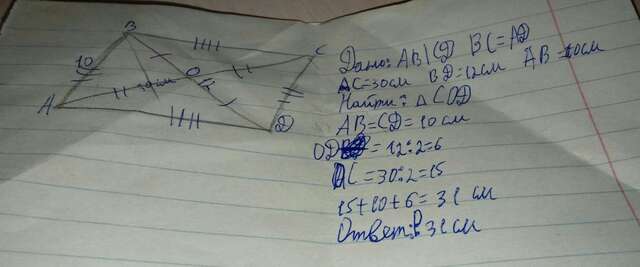 B
C
10
O
30см
12
A
D
Дано: ABCD BC=AD
AC=30см BD=12см AB=10см
Найти: △COD
AB=CD=10см
OD = 12:2=6
OC=30:2=15
15+10+6=31 см
Ответ: 31см